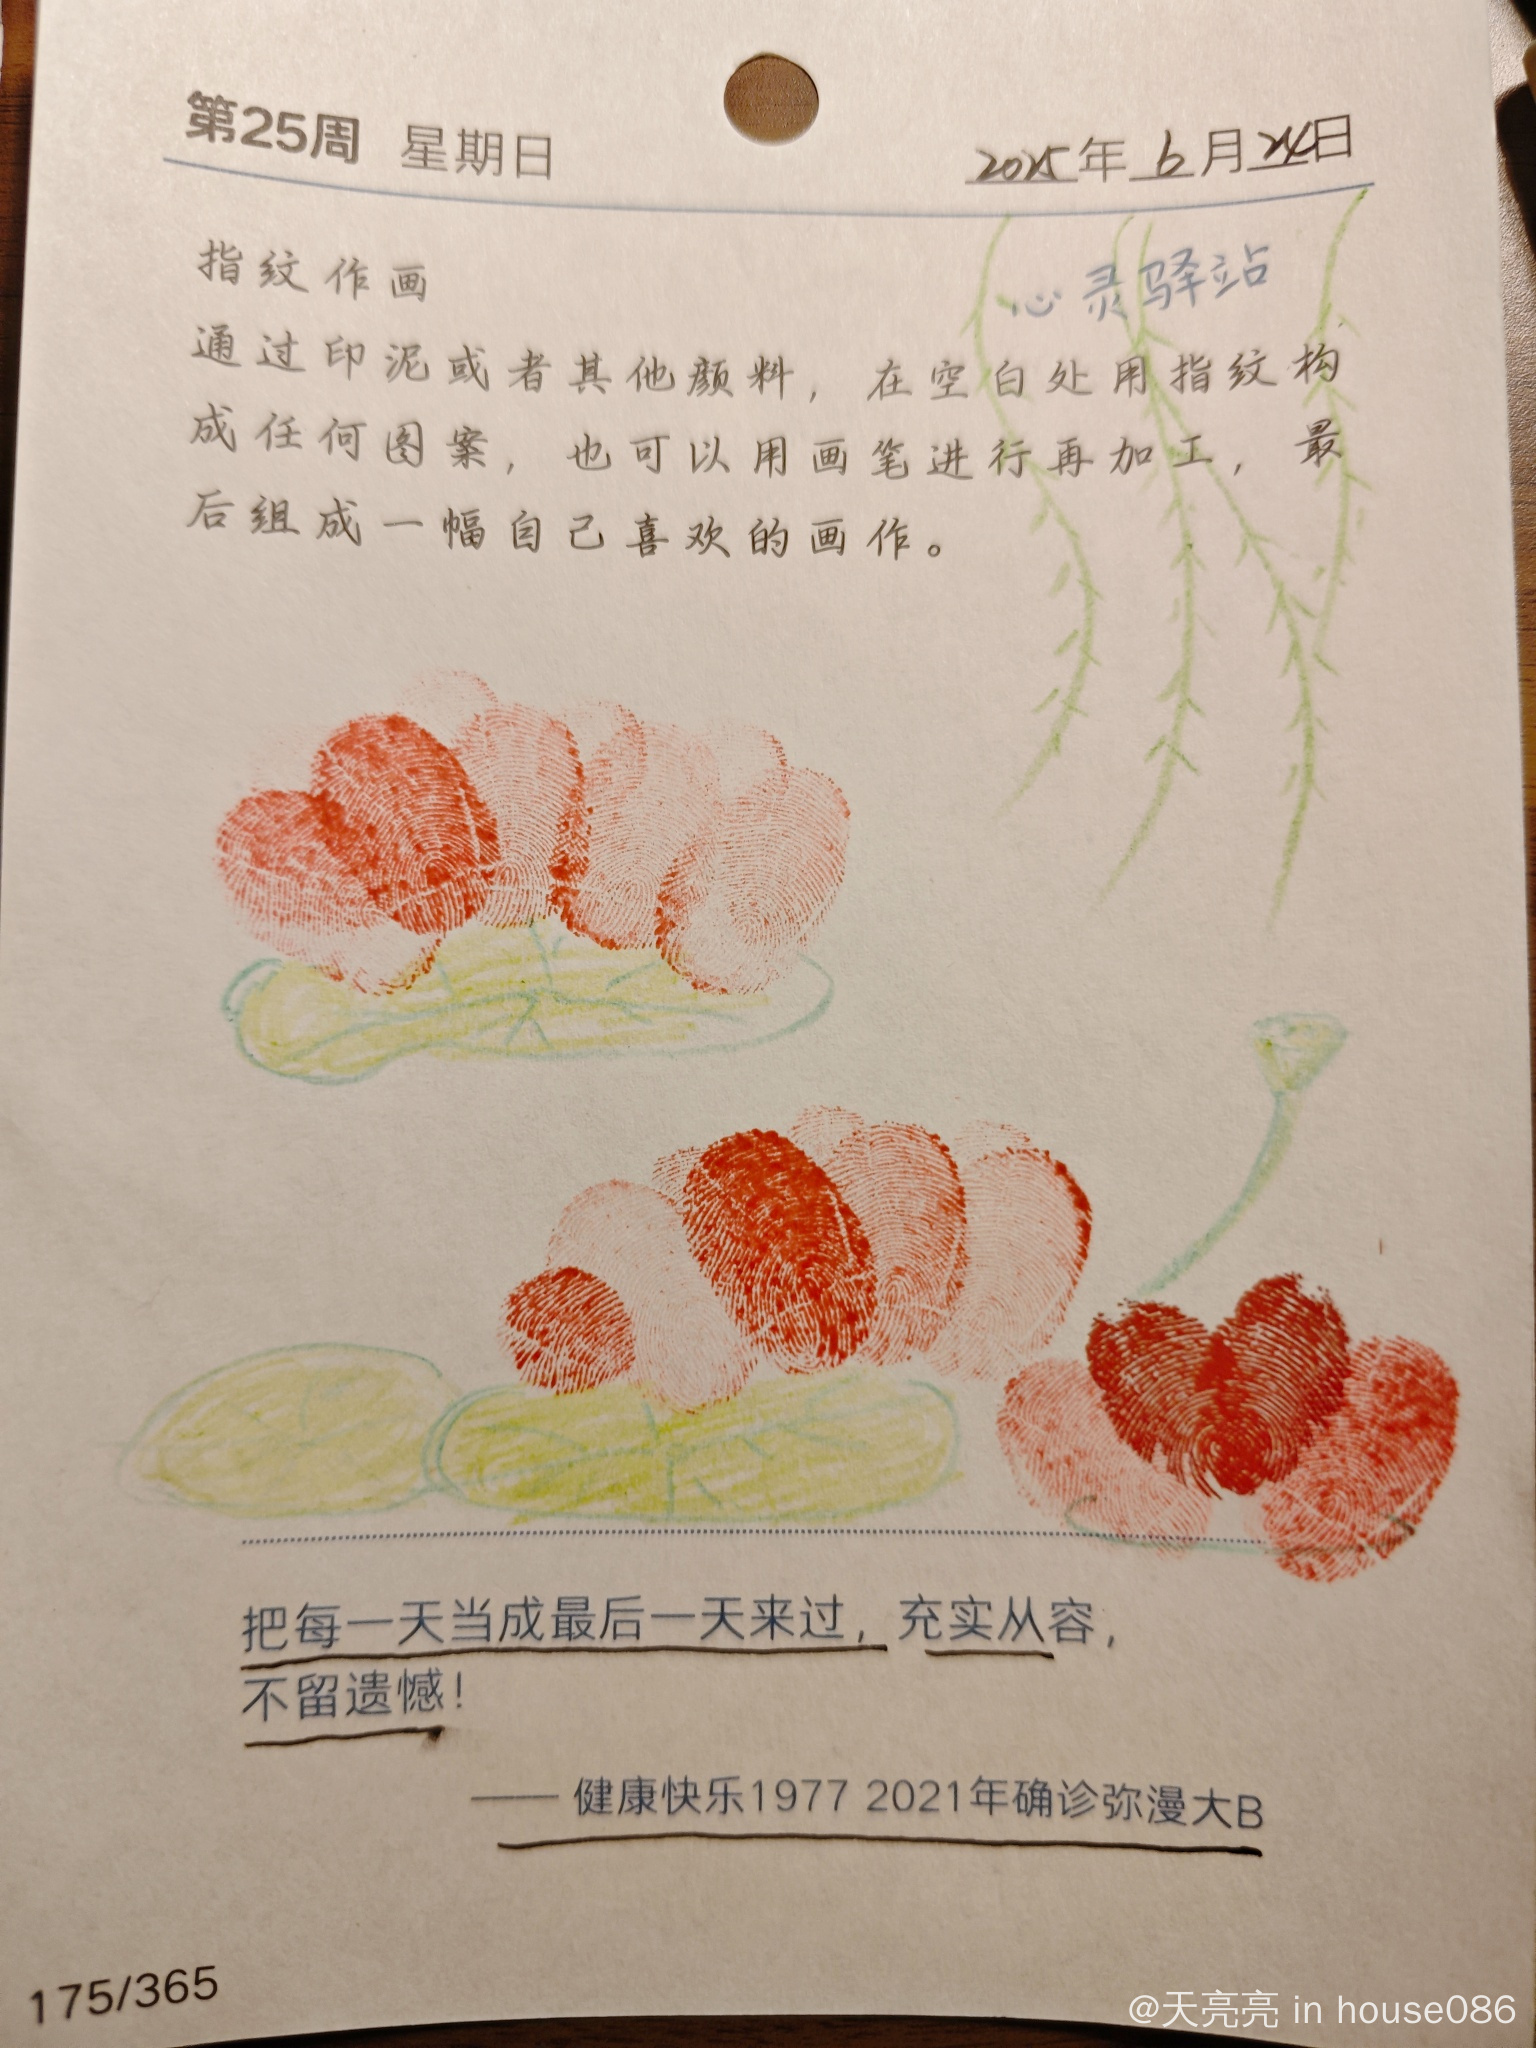 第25周 星期日
2025年6月24日
心灵驿站
指纹作画
通过印泥或者其他颜料，在空白处用指纹构
成任何图案，也可以用画笔进行再加工，最
后组成一幅自己喜欢的画作。
把每一天当成最后一天来过，充实从容，
不留遗憾！
—— 健康快乐1977 2021年确诊弥漫大B
175/365
@天亮亮 in house086